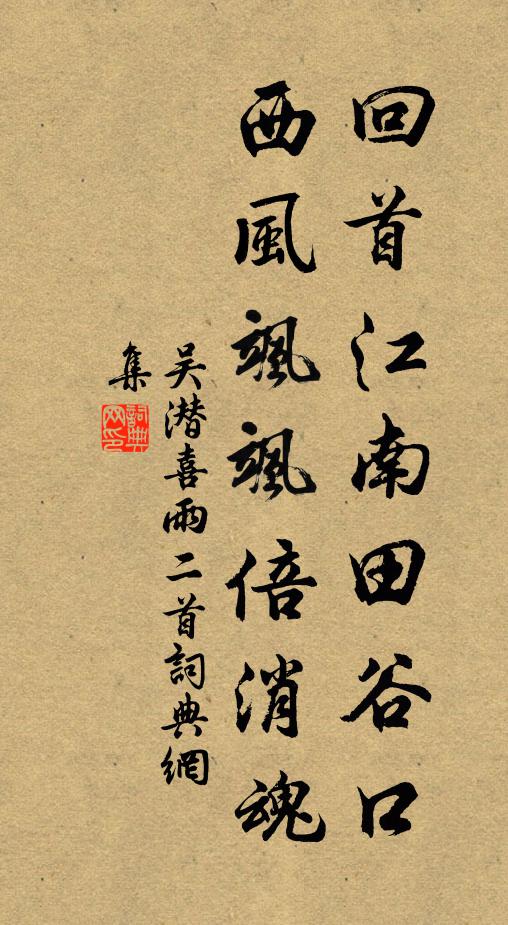 回首江南田谷口
西風颯颯倍消魂
吴潜喜雨二首詞典網
集
詞典
网印